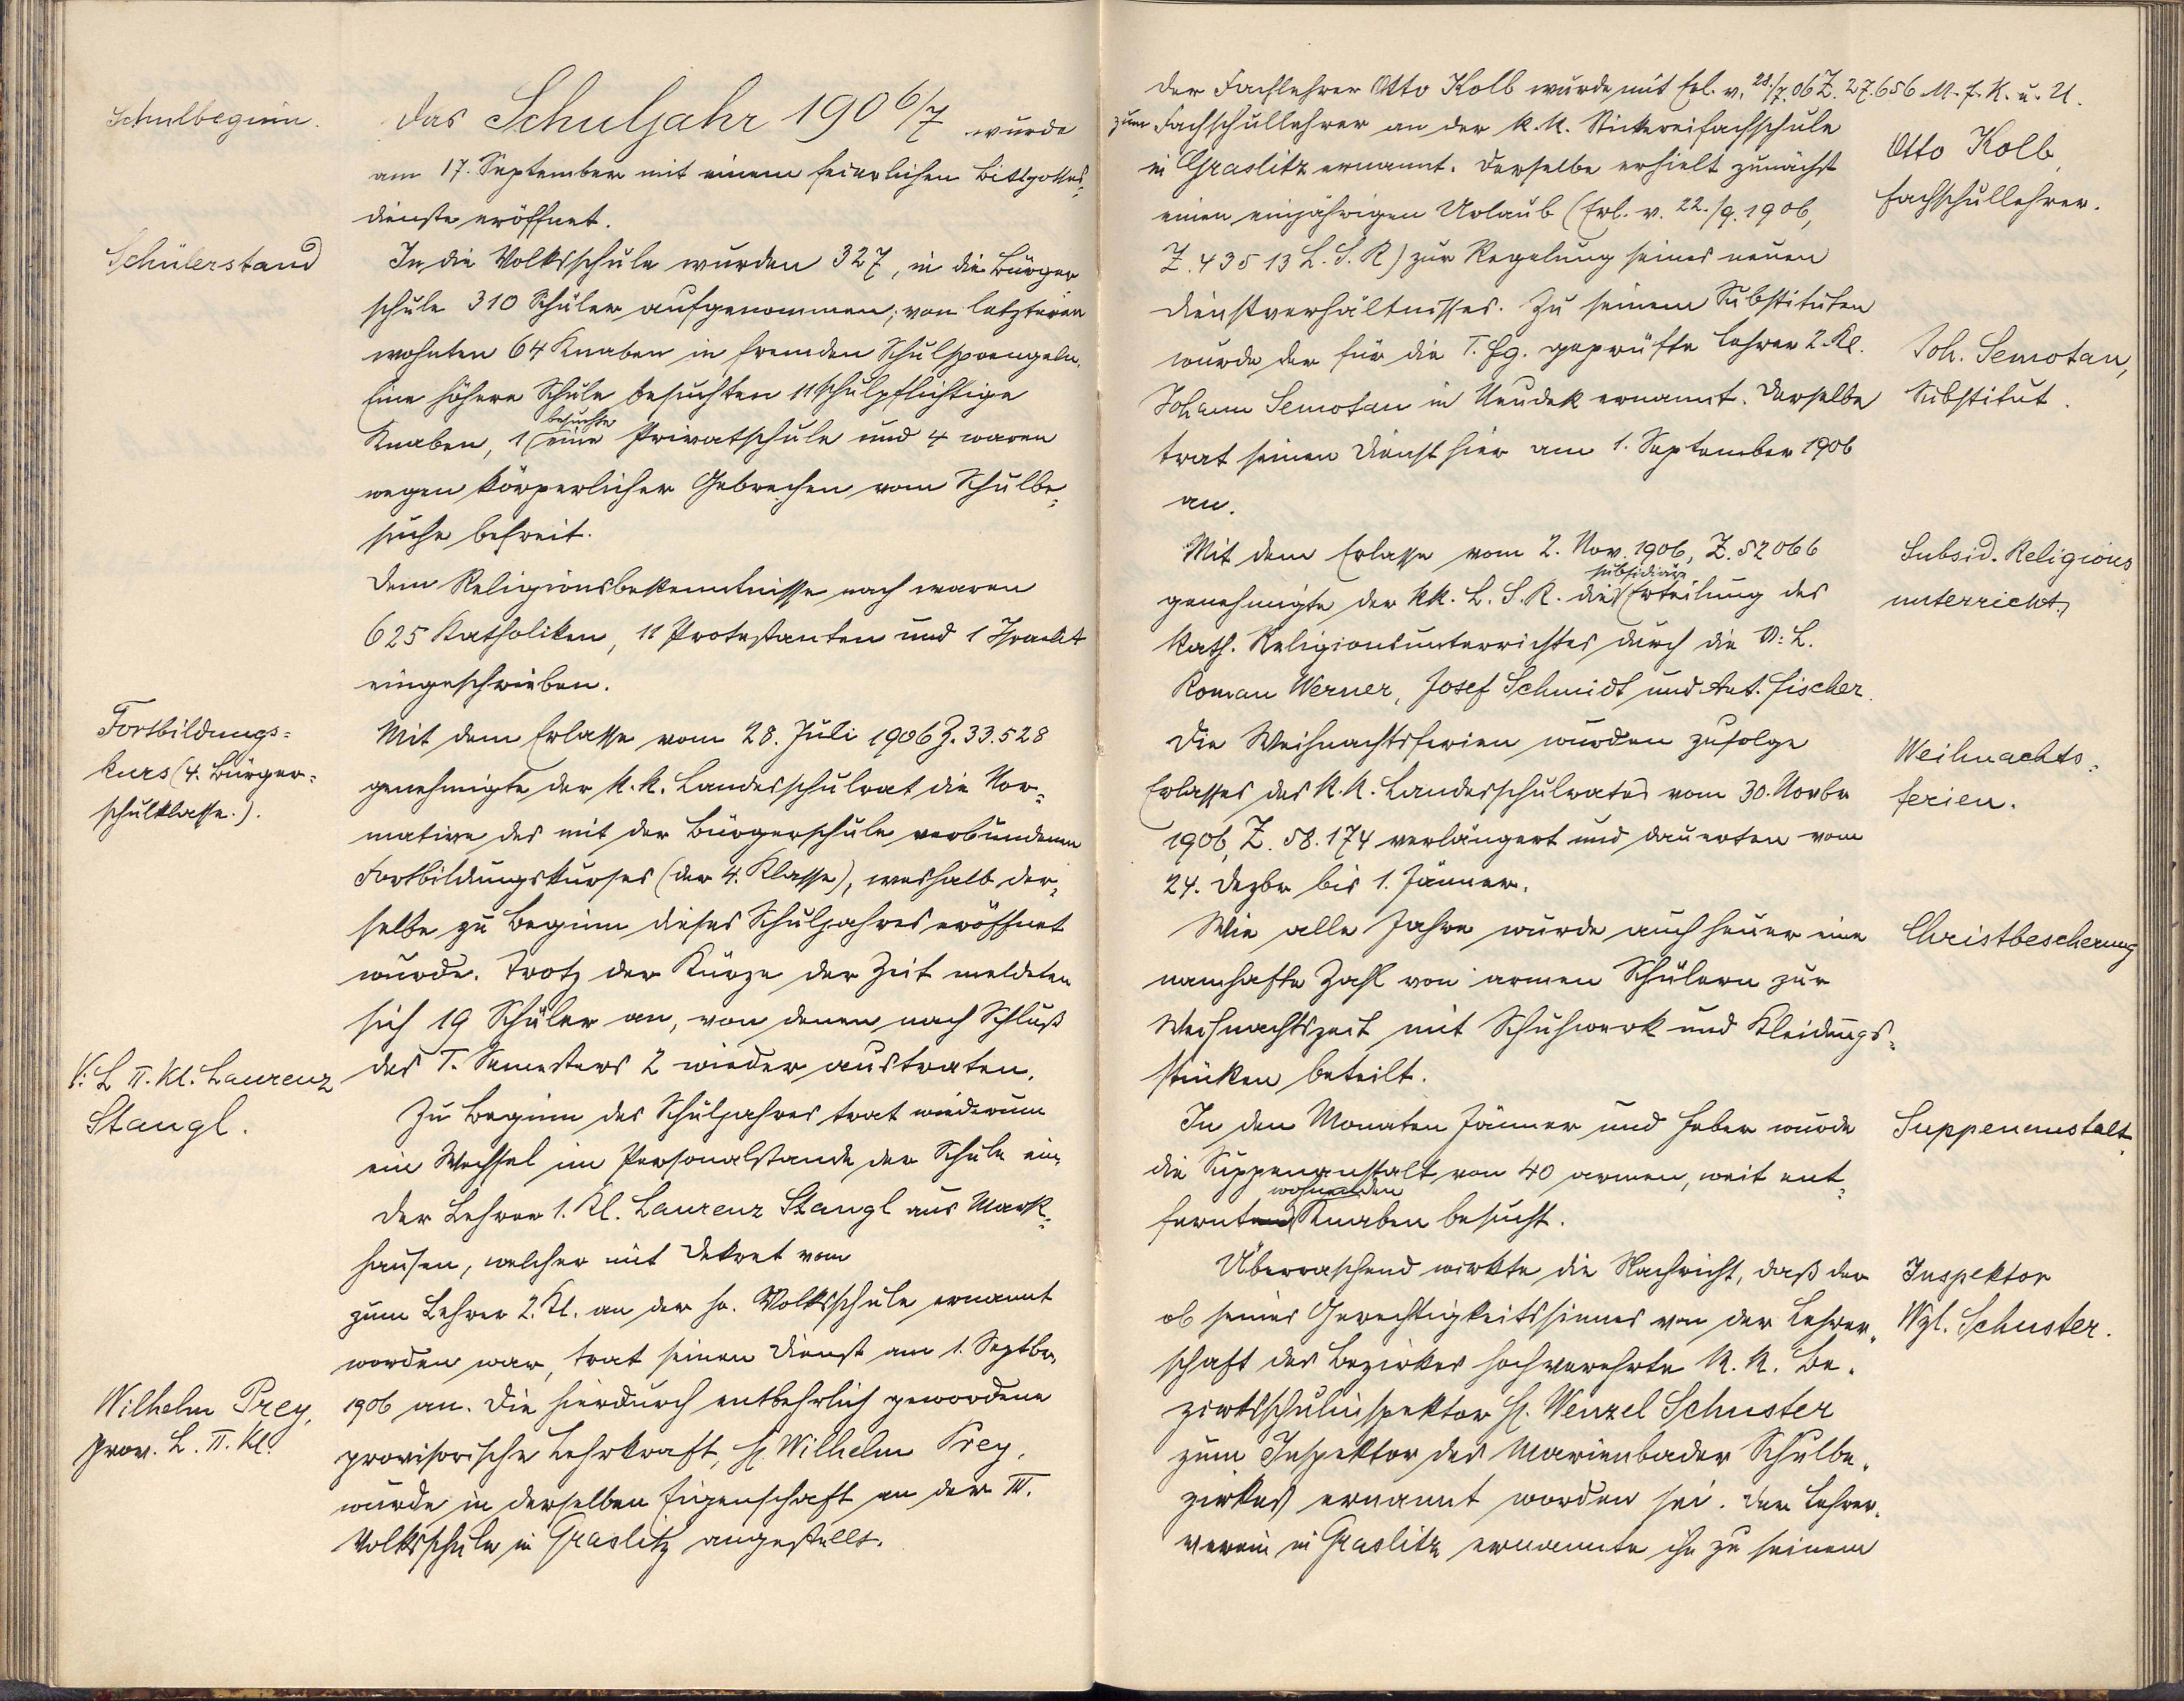 Schulbeginn.
Das Schuljahr 1906/7 wurde
am 17. September mit einem feierlichen Bittgottes-
dienste eröffnet.
Schülerstand
In die Volksschule wurden 327, in die Bürger
schule 310 Schüler aufgenommen; von letzteren
wohnten 64 Knaben in fremden Schulsprengeln.
Eine höhere Schule besuchten 11 schulpflichtige
Knaben, 1 besuchte eine Privatschule und 4 waren
wegen körperlicher Gebrechen vom Schulbe-
suche befreit.
Dem Religionsbekenntnisse nach waren
625 Katholiken, 11 Protestanten und 1 Israelit
eingeschrieben.
Fortbildungs-
kurs (4. Bürger-
schulklasse.).
Mit dem Erlasse vom 28. Juli 1906 Z. 33.528
genehmigte der k. k. Landesschulrat die Nor-
mative des mit der Bürgerschule verbundenen
Fortbildungskurses (der 4. Klasse), weshalb der-
selbe zu Beginn dieses Schuljahres eröffnet
wurde. Trotz der Kürze der Zeit meldeten
sich 19 Schüler an, von denen nach Schluß
des I. Semesters 2 wieder austraten.
V: L II. Kl. Laurenz
Stangl.
Zu Beginn des Schuljahres trat wiederum
ein Wechsel im Personalstande der Schule ein.
Der Lehrer 1. Kl. Laurenz Stangl aus Mark-
hausen, welcher mit Dekret vom
zum Lehrer 2. Kl. an der hs. Volksschule ernannt
worden war, trat seinen Dienst am 1. Septbr.
Wilhelm Prey,
prov. L. II. Kl.
1906 an. Die hierdurch entbehrlich gewordene
provisorische Lehrkraft, H. Wilhelm Prey,
wurde in derselben Eigenschaft an der III.
Volksschule in Graslitz angestellt.
Der Fachlehrer Otto Kolb wurde mit Erl. v. 28./7.06 Z. 27.656 M. f. K. u. U.
zum Fachschullehrer an der k. k. Stickereifachschule
in Graslitz ernannt. Derselbe erhielt zunächst
einen einjährigen Urlaub (Erl. v. 22./9. 1906,
Z. 43513 L. S. R) zur Regelung seines neuen
Dienstverhältnisses. Zu seinem Substituten
wurde der für die I. Fg. geprüfte Lehrer 2. Kl.
Johann Semotan in Neudek ernannt. Derselbe
trat seinen Dienst hier am 1. September 1906
an.
Otto Kolb,
Fachschullehrer.
Joh. Semotan,
Substitut.
Mit dem Erlasse vom 2. Nov. 1906, Z. 52066
genehmigte der k.k. L. S. R. die subsidiäre Erteilung des
kath. Religionsunterrichtes durch die V: L.
Roman Werner, Josef Schmidt und Ant. Fischer.
Subsid. Religions
unterricht
Die Weihnachtsferien wurden zufolge
Erlasses des k. k. Landesschulrates vom 30. Novbr
1906, Z. 58.174 verlängert und dauerten vom
24. Dezbr bis 1. Jänner.
Weihnachts-
ferien.
Wie alle Jahre wurde auch heuer eine
namhafte Zahl von armen Schülern zur
Weihnachtszeit mit Schuhwerk und Kleidungs-
stücken beteilt.
Christbescherung
In den Monaten Jänner und Feber wurde
die Suppenanstalt von 40 armen, weit ent-
fernt wohnenden Knaben besucht.
Suppenanstalt.
Überraschend wirkte die Nachricht, daß der
ob seines Gerechtigkeitssinnes von der Lehrer-
schaft des Bezirkes hochverehrte k. k. Be-
zirksschulinspektor H. Wenzel Schuster
zum Inspektor des Marienbader Schulbe-
zirkes ernannt worden sei. Der Lehrer-
verein in Graslitz ernannte ihn zu seinem
Inspektor
Wzl. Schuster.